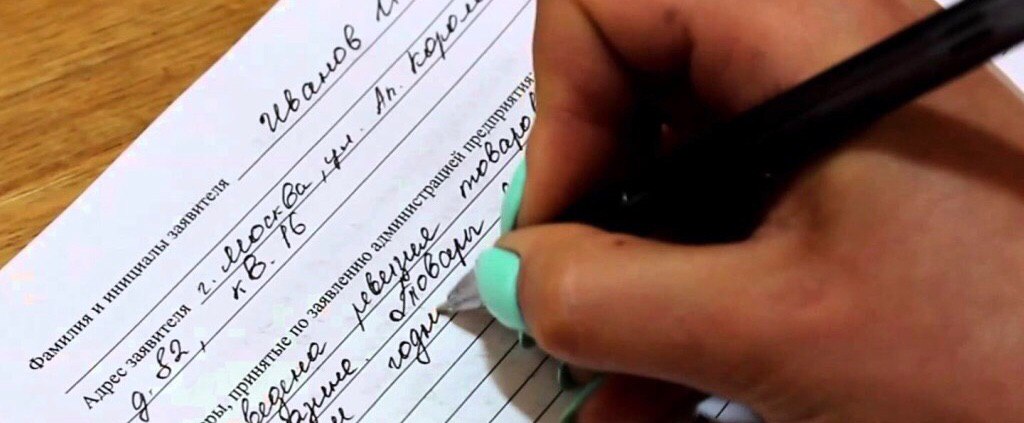 Фамилия и инициалы заявителя Иванов
Адрес заявителя г. Москва, ул. Ак. Короле
д. 82, кв. 16
ры, принятые по заявлению администрацией предприятия:
ведена ревизия товаро
товары
годн